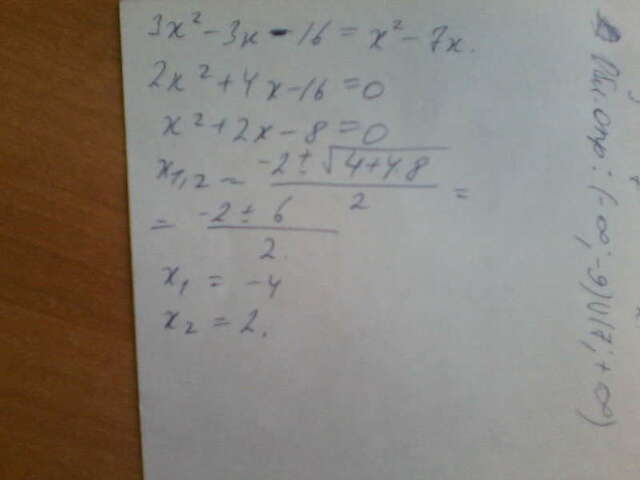 3x² - 3x - 16 = x² - 7x.
2x² + 4x - 16 = 0
x² + 2x - 8 = 0
x₁,₂ = (-2 ± √(4+4·8))/2 =
= (-2 ± 6)/2.
x₁ = -4
x₂ = 2.
опр: (-∞; -9)U(7; +∞)